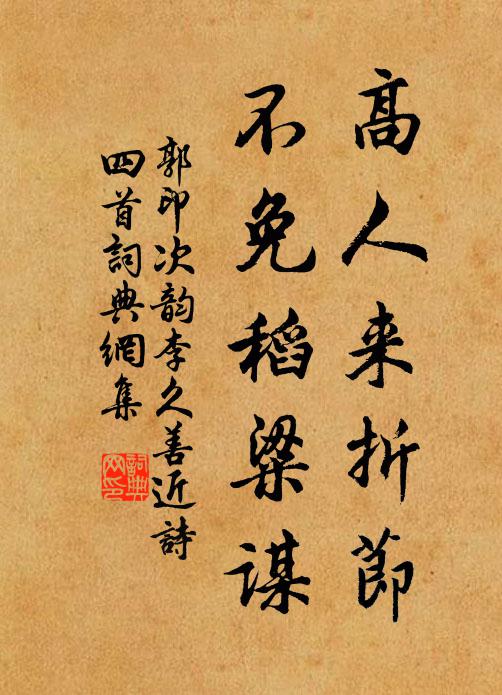 高人来折節
不免稻梁謀
郭印次韵李久善近詩
四首詞典網集
詞典
网印